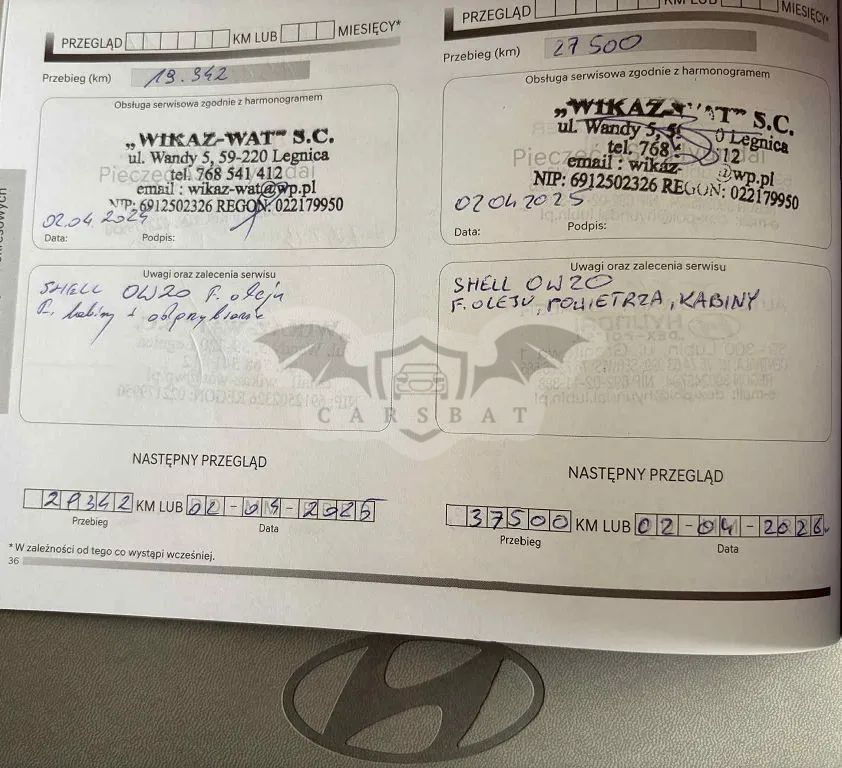 PRZEGLĄD KM LUB MIESIĘCY*
Przebieg (km) 19.342
Obsługa serwisowa zgodnie z harmonogramem
„WIKAZ-WAT” S.C.
ul. Wandy 5, 59-220 Legnica
tel. 768 541 412
email : wikaz-wat@wp.pl
NIP: 6912502326 REGON: 022179950
02.04.2024
Data: Podpis:
Uwagi oraz zalecenia serwisu
SHELL 0W20 F. oleju
F. kabiny +
NASTĘPNY PRZEGLĄD
29342 KM LUB 02-04-2025
Przebieg Data
* W zależności od tego co wystąpi wcześniej.
36
PRZEGLĄD KM LUB MIESIĘCY*
Przebieg (km) 27500
Obsługa serwisowa zgodnie z harmonogramem
„WIKAZ-WAT” S.C.
ul. Wandy 5, 0 Legnica
tel. 768 12
email : wikaz- @wp.pl
NIP: 6912502326 REGON: 022179950
02042025
Data: Podpis:
Uwagi oraz zalecenia serwisu
SHELL 0W20
F. OLEJU, POWIETRZA, KABINY
NASTĘPNY PRZEGLĄD
37500 KM LUB 02-04-2026
Przebieg Data
CARSBAT